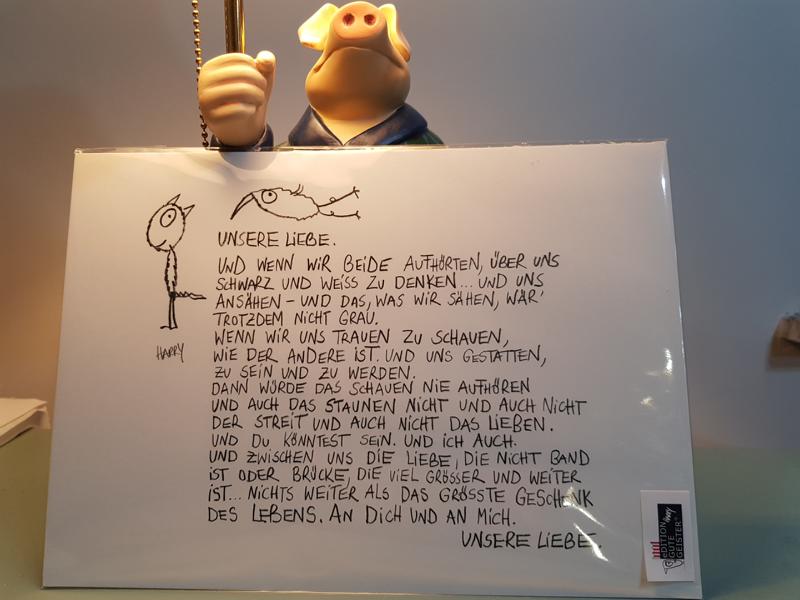 UNSERE LIEBE.
UND WENN WIR BEIDE AUFHÖRTEN, ÜBER UNS
SCHWARZ UND WEISS ZU DENKEN... UND UNS
ANSÄHEN – UND DAS, WAS WIR SÄHEN, WÄR'
TROTZDEM NICHT GRAU.
WENN WIR UNS TRAUEN ZU SCHAUEN,
WIE DER ANDERE IST. UND UNS GESTATTEN,
ZU SEIN UND ZU WERDEN.
DANN WÜRDE DAS SCHAUEN NIE AUFHÖREN
UND AUCH DAS STAUNEN NICHT UND AUCH NICHT
DER STREIT UND AUCH NICHT DAS LIEBEN.
UND DU KÖNNTEST SEIN. UND ICH AUCH.
UND ZWISCHEN UNS DIE LIEBE, DIE NICHT BAND
IST ODER BRÜCKE, DIE VIEL GRÖSSER UND WEITER
IST... NICHTS WEITER ALS DAS GRÖSSTE GESCHENK
DES LEBENS. AN DICH UND AN MICH.
UNSERE LIEBE.
HARRY
EDITION
GUTE
GEISTER